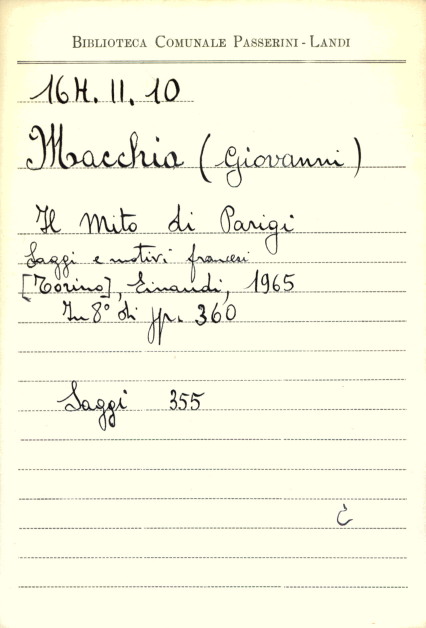 BIBLIOTECA COMUNALE PASSERINI - LANDI
16H. II. 10
Macchia (Giovanni)
Il Mito di Parigi
Saggi e motivi francesi
[Torino], Einaudi, 1965
In 8° di pp. 360
Saggi 355